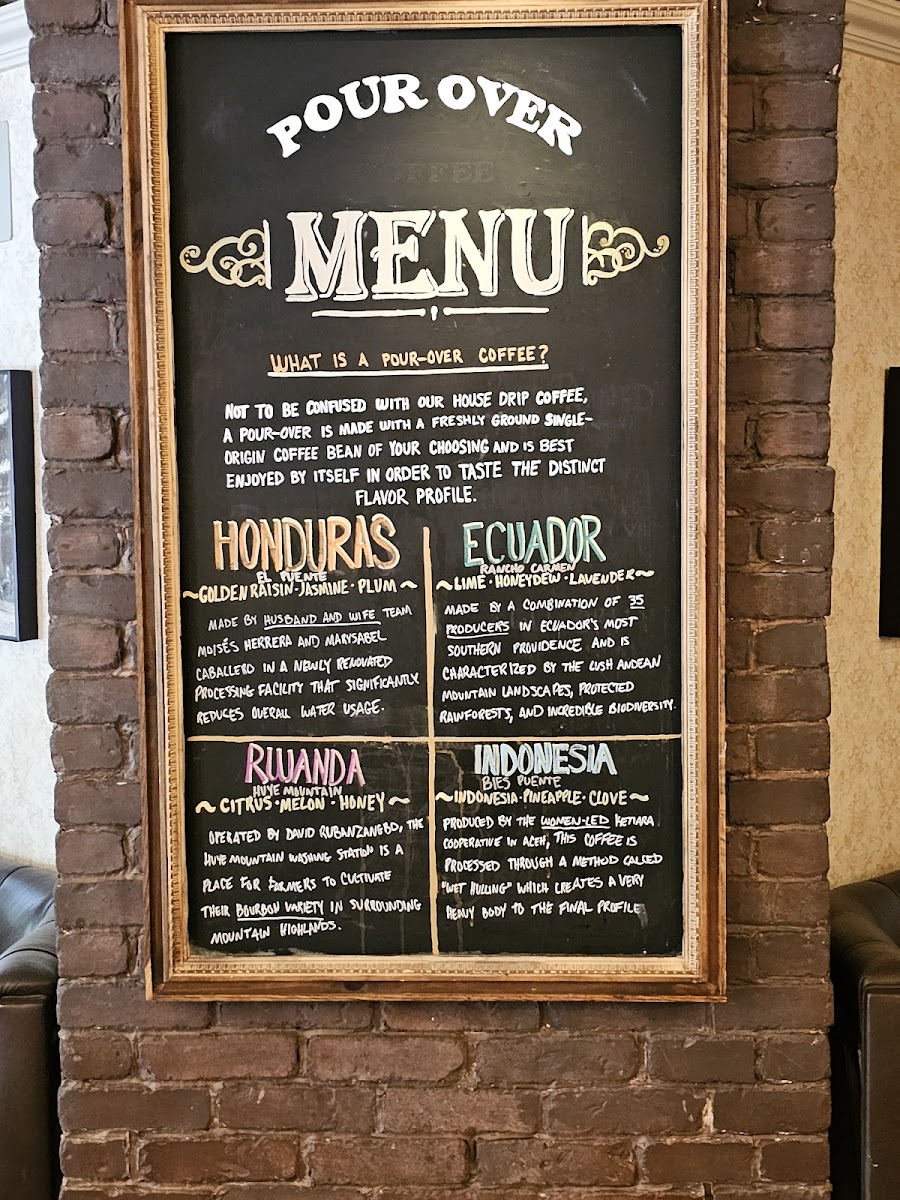 POUR OVER
MENU
WHAT IS A POUR-OVER COFFEE?
NOT TO BE CONFUSED WITH OUR HOUSE DRIP COFFEE,
A POUR-OVER IS MADE WITH A FRESHLY GROUND SINGLE-
ORIGIN COFFEE BEAN OF YOUR CHOOSING AND IS BEST
ENJOYED BY ITSELF IN ORDER TO TASTE THE DISTINCT
FLAVOR PROFILE.
HONDURAS
EL PUENTE
~GOLDEN RAISIN·JASMINE·PLUM~
MADE BY HUSBAND AND WIFE TEAM
MOISÉS HERRERA AND MARYSABEL
CABALLERO IN A NEWLY RENOVATED
PROCESSING FACILITY THAT SIGNIFICANTLY
REDUCES OVERALL WATER USAGE.
ECUADOR
RANCHO CARMEN
~LIME·HONEYDEW·LAVENDER~
MADE BY A COMBINATION OF 35
PRODUCERS IN ECUADOR'S MOST
SOUTHERN PROVIDENCE AND IS
CHARACTERIZED BY THE LUSH ANDEAN
MOUNTAIN LANDSCAPES, PROTECTED
RAINFORESTS, AND INCREDIBLE BIODIVERSITY.
RWANDA
HUYE MOUNTAIN
~CITRUS·MELON·HONEY~
OPERATED BY DAVID RUBANZANGBO, THE
HUYE MOUNTAIN WASHING STATION IS A
PLACE FOR FARMERS TO CULTIVATE
THEIR BOURBON VARIETY IN SURROUNDING
MOUNTAIN HIGHLANDS.
INDONESIA
BIES PUENTE
~INDONESIA·PINEAPPLE·CLOVE~
PRODUCED BY THE WOMEN-LED KETIARA
COOPERATIVE IN ACEH, THIS COFFEE IS
PROCESSED THROUGH A METHOD CALLED
"WET HULLING" WHICH CREATES A VERY
HEAVY BODY TO THE FINAL PROFILE